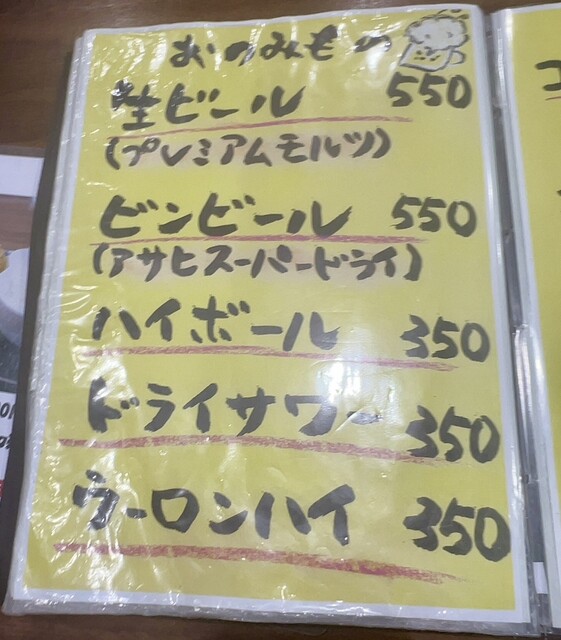 おのみもの
生ビール 550
(プレミアムモルツ)
ビンビール 550
(アサヒスーパードライ)
ハイボール 350
ドライサワー 350
ウーロンハイ 350